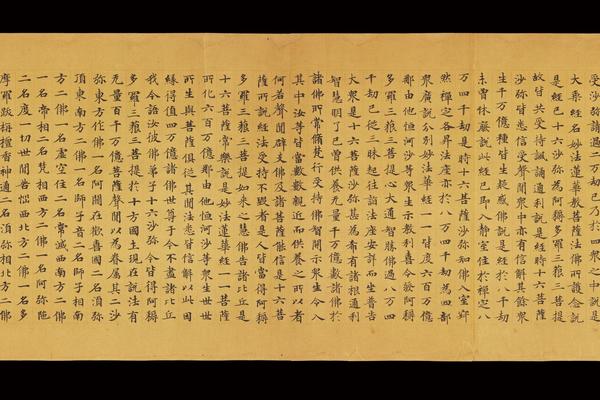 受沙弥請過二万劫已乃於四衆之中說是
大乘經名妙法蓮華教菩薩法佛所護念說
是經已十六沙弥為阿耨多羅三藐三菩提
故皆共受持諷誦通利說是經時十六菩薩
沙弥皆悉信受聲聞衆中亦有信解其餘衆
生千万億種皆生疑惑佛說是經於八千劫
未曾休廢說此經已即入靜室住於禪定八
万四千劫是時十六菩薩沙弥知佛入室寂
然禪定各昇法座亦於八万四千劫為四部
衆廣說分別妙法華經一一皆度六百万億
那由他恒河沙等衆生示教利喜令發阿耨
多羅三藐三菩提心大通智勝佛過八万四
千劫已從三昧起往詣法座安詳而坐普告
大衆是十六菩薩沙弥甚為希有諸根通利
智慧明了已曾供養无量千万億數諸佛於
諸佛所常脩梵行受持佛智開示衆生令入
其中汝等皆當數數親近而供養之所以者
何若聲聞辟支佛及諸菩薩能信是十六菩
薩所說經法受持不毀者是人皆當得阿耨
多羅三藐三菩提如來之慧佛告諸比丘是
十六菩薩常樂說是妙法蓮華經一一菩薩
所化六百万億那由他恒河沙等衆生世世
所生與菩薩俱從其聞法悉皆信解以此因
緣得值四万億諸佛世尊于今不盡諸比丘
我今語汝彼佛弟子十六沙弥今皆得阿耨
多羅三藐三菩提於十方國土現在說法有
无量百千万億菩薩聲聞以為眷属其二沙
弥東方作佛一名阿閦在歡喜國二名湏弥
頂東南方二佛一名師子音二名師子相南
方二佛一名虛空住二名常滅西南方二佛
一名帝相二名梵相西方二佛一名阿弥陁
二名度一切世間苦惱西北方二佛一名多
摩羅跋栴檀香神通二名湏弥相北方二佛